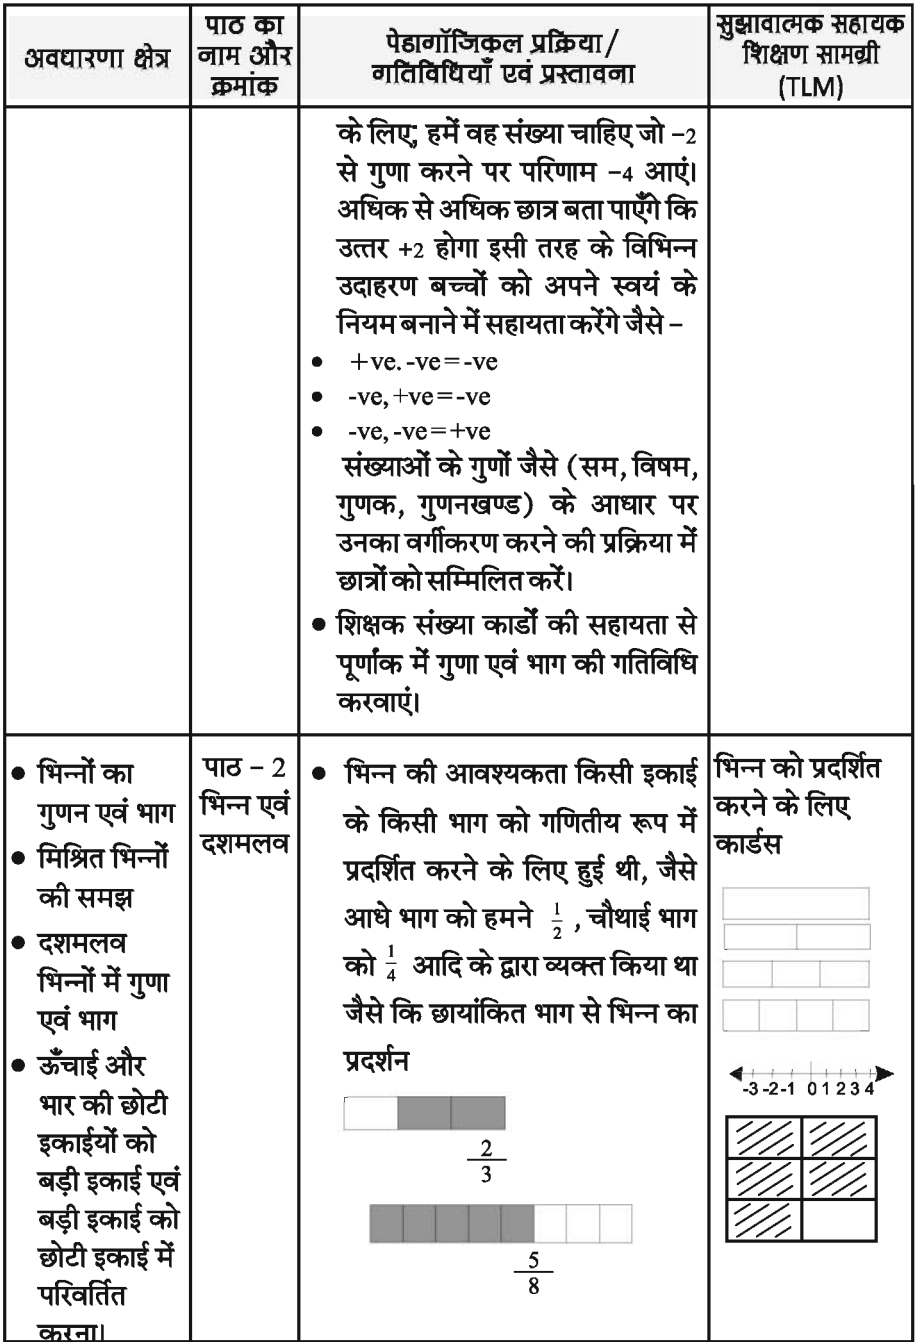 अवधारणा क्षेत्र
पाठ का
नाम और
क्रमांक
पेडागॉजिकल प्रक्रिया/
गतिविधियाँ एवं प्रस्तावना
सुझावात्मक सहायक
शिक्षण सामग्री
(TLM)
के लिए; हमें वह संख्या चाहिए जो –2
से गुणा करने पर परिणाम –4 आएं।
अधिक से अधिक छात्र बता पाएँगे कि
उत्तर +2 होगा इसी तरह के विभिन्न
उदाहरण बच्चों को अपने स्वयं के
नियम बनाने में सहायता करेंगे जैसे –
● +ve. -ve = -ve
● -ve, +ve = -ve
● -ve, -ve = +ve
संख्याओं के गुणों जैसे (सम, विषम,
गुणक, गुणनखण्ड) के आधार पर
उनका वर्गीकरण करने की प्रक्रिया में
छात्रों को सम्मिलित करें।
● शिक्षक संख्या कार्डों की सहायता से
पूर्णांक में गुणा एवं भाग की गतिविधि
करवाएं।
● भिन्नों का
गुणन एवं भाग
● मिश्रित भिन्नों
की समझ
● दशमलव
भिन्नों में गुणा
एवं भाग
● ऊँचाई और
भार की छोटी
इकाईयों को
बड़ी इकाई एवं
बड़ी इकाई को
छोटी इकाई में
परिवर्तित
करना।
पाठ – 2
भिन्न एवं
दशमलव
● भिन्न की आवश्यकता किसी इकाई
के किसी भाग को गणितीय रूप में
प्रदर्शित करने के लिए हुई थी, जैसे
आधे भाग को हमने 1/2 , चौथाई भाग
को 1/4 आदि के द्वारा व्यक्त किया था
जैसे कि छायांकित भाग से भिन्न का
प्रदर्शन
2/3
5/8
भिन्न को प्रदर्शित
करने के लिए
कार्डस
-3 -2 -1 0 1 2 3 4